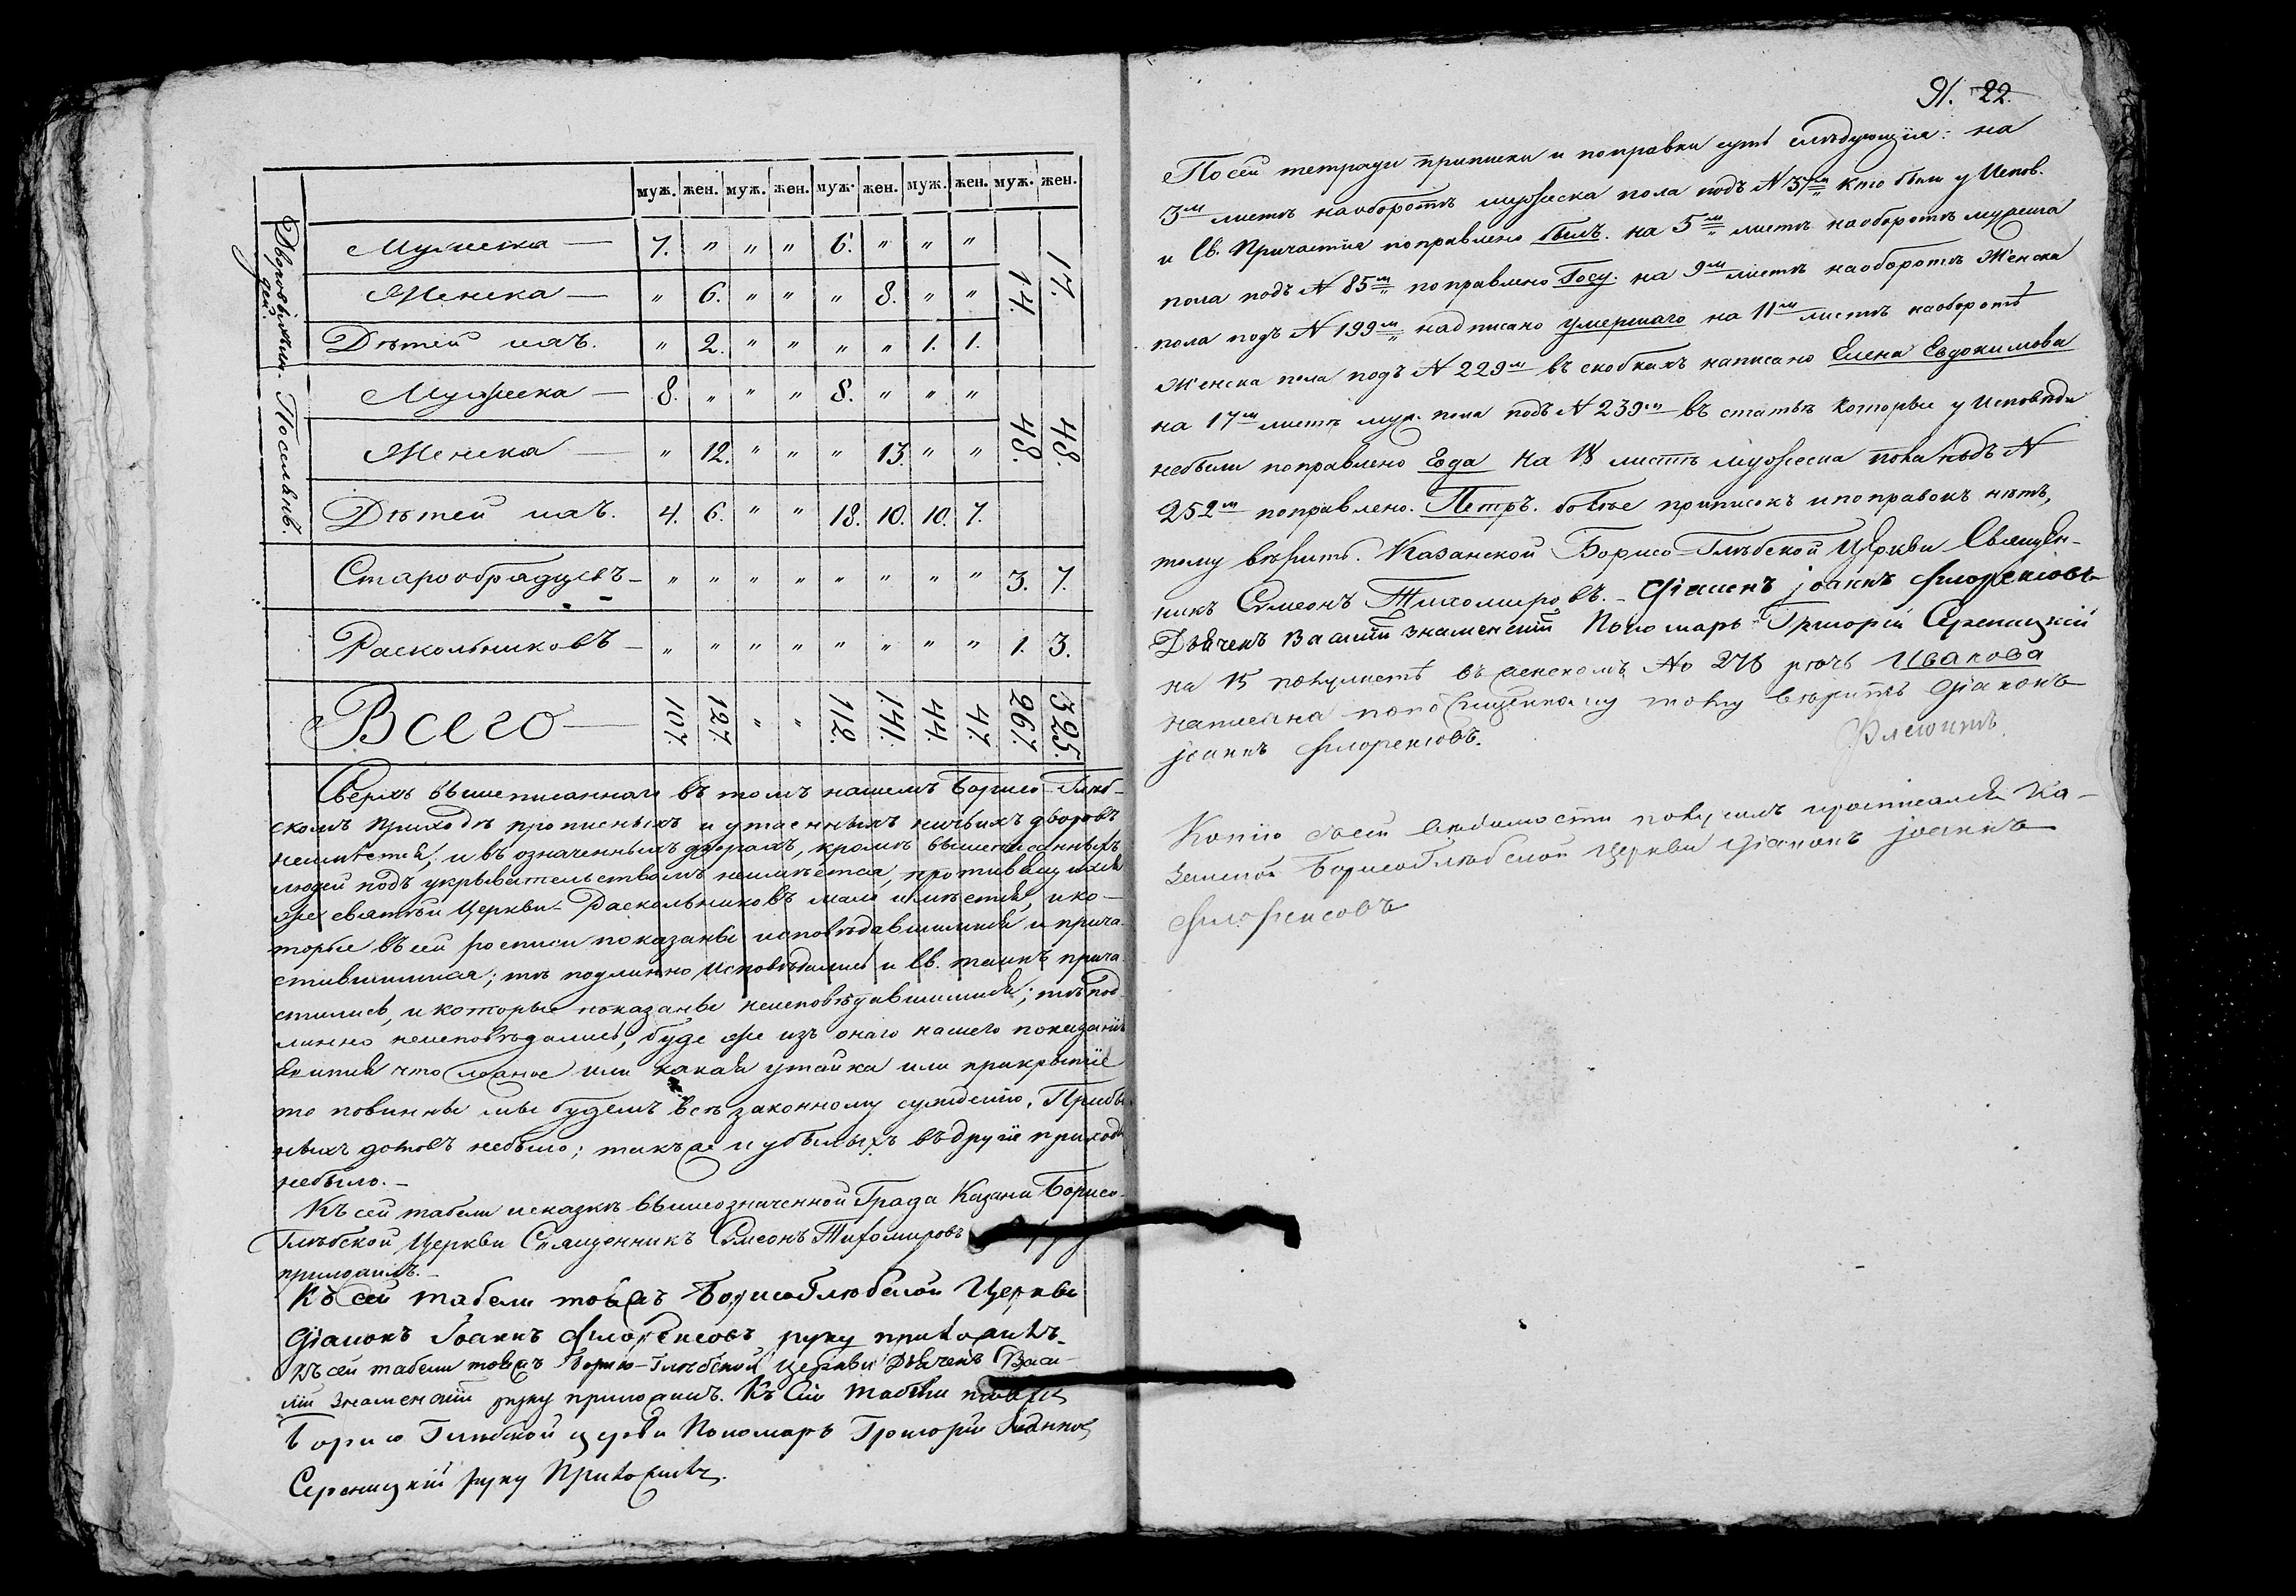 муж. жен. муж. жен. муж. жен. муж. жен. муж. жен.
Дворовыхъ людей.
Мужеска — 7. " " " 6. " " "
Женска — " 6. " " " 8. " "
Дѣтей ихъ. " 2. " " " " 1. 1.
14. 17.
Поселянъ.
Мужеска — 8. " " " 8. " " "
Женска — " 12. " " " 13. " "
Дѣтей ихъ. 4. 6. " " 18. 10. 10. 7.
48. 48.
Старообрядцевъ — " " " " " " " " 3. 7.
Раскольниковъ — " " " " " " " " 1. 3.
Всего — 107. 127. " " 112. 141. 44. 47. 267. 325.
Сверхъ вышеписаннаго въ томъ нашемъ Борисо-Глѣб-
скомъ приходѣ прописныхъ и утаенныхъ ничьихъ дворовъ
неимѣется, и въ означенныхъ дворахъ, кромѣ вышеписанныхъ
людей подъ укрывательствомъ неимѣется, противящихся
же святѣй Церкви Раскольниковъ мало имѣется, и ко-
торые въ сей росписи показаны исповѣдавшимися и прича-
стившимися; тѣ подлинно исповѣдались и Св. таинъ прича-
стились, и которые показаны неисповѣдавшимися; тѣ под-
линно неисповѣдались, буде же изъ онаго нашего показанія
явится что ложное или какая утайка или прикрытіе
то повинны мы будемъ всѣ законному сужденію. Прибы-
лыхъ домовъ небыло; такъже и убылыхъ въ другіе приходы
небыло. —
Къ сей табели и сказкѣ вышеозначенной Града Казани Борисо-
Глѣбской Церкви Священникъ Симеонъ Тихомировъ руку
приложилъ. —
Къ сей табели тояжъ Борисоглѣбской Церкви
Діаконъ Іоаннъ Флоренсовъ руку приложилъ.
Къ сей табели тояжъ Борисо-Глѣбской Церкви Дьячекъ Васи-
лій Знаменскій руку приложилъ. Къ сей табели тояжъ
Борисо Глѣбской церкви Пономарь Григорій
Серницкій руку приложилъ.
91. 22.
По сей тетради приписки и поправки суть слѣдующія: на
3м листѣ наоборотѣ мужеска пола подъ N 37м кто былъ у Испов.
и Св. Причастія поправлено былъ. на 5м листѣ наоборотѣ мужеска
пола подъ N 85м поправлено Госу. на 9м листѣ наоборотѣ Женска
пола подъ N 199м надписано умершаго на 11м листѣ наоборотѣ
Женска пола подъ N 229м въ скобкахъ написано Елена Евдокимова
на 17м листѣ муж. пола подъ N 239м въ статьѣ которые у Исповѣди
небыли поправлено года на 18 листѣ мужеска пола подъ N
252м поправлено. Петръ. болѣе приписокъ и поправокъ нѣтъ,
тому вѣрить. Казанской Борисо-Глѣбской Церкви Священ-
никъ Симеонъ Тихомировъ. — Діаконъ Іоаннъ Флоренсовъ
Дьячекъ Василій Знаменскій Пономарь Григорій Серницкій
на 15 полулистѣ въ женскомъ No 278 рѣчь Иванова
написана по тому вѣрить Діаконъ
Іоаннъ Флоренсовъ.
Копію сей вѣдомости получилъ Ка-
занской Борисоглѣбской Церкви Діаконъ Іоаннъ
Флоренсовъ